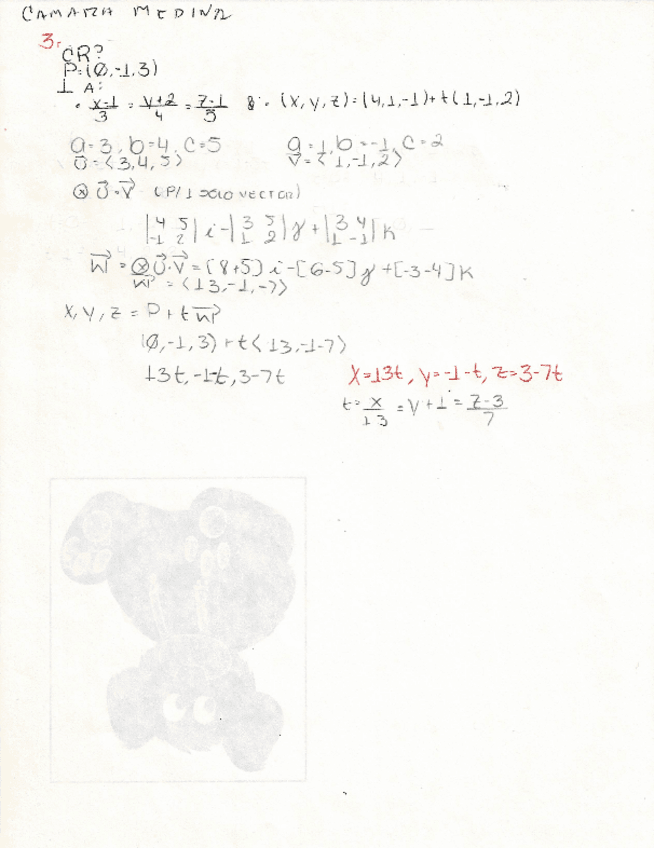 CAMARA MEDINA
3.
CR?
P=(0,-1,3)
⊥ A:
• x-1/3 = y+2/4 = z-1/5 y • (x,y,z)=(4,1,-1)+t(1,-1,2)
a=3, b=4, c=5 a=1, b=-1, c=2
U=<3,4,5> V=<1,-1,2>
⊗ U·V (P/1 solo VECTOR)
|4 5| i - |3 5| j + |3 4| K
|-1 2| |1 2| |1 -1|
W = ⊗ U·V = [8+5] i - [6-5] j + [-3-4] K
W = <13,-1,-7>
x, y, z = P + t W
(0,-1,3) + t<13,-1-7>
13t, -1-t, 3-7t X=13t, y=-1-t, z=3-7t
t= x/13 = y+1 = z-3/7